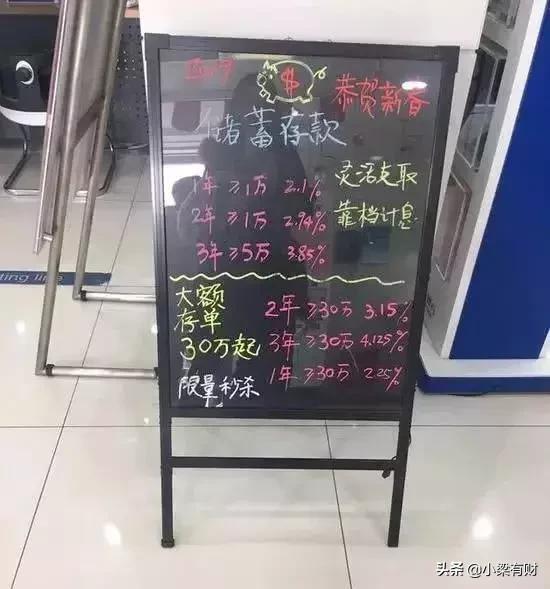 $
恭贺新春
储蓄存款
1年 ≥1万 2.1%
2年 ≥1万 2.94%
3年 ≥5万 3.85%
灵活支取
靠档计息
大额
存单
30万起
限量秒杀
2年 ≥30万 3.15%
3年 ≥30万 4.125%
1年 ≥30万 2.25%
ting line
头条 @小梁有财